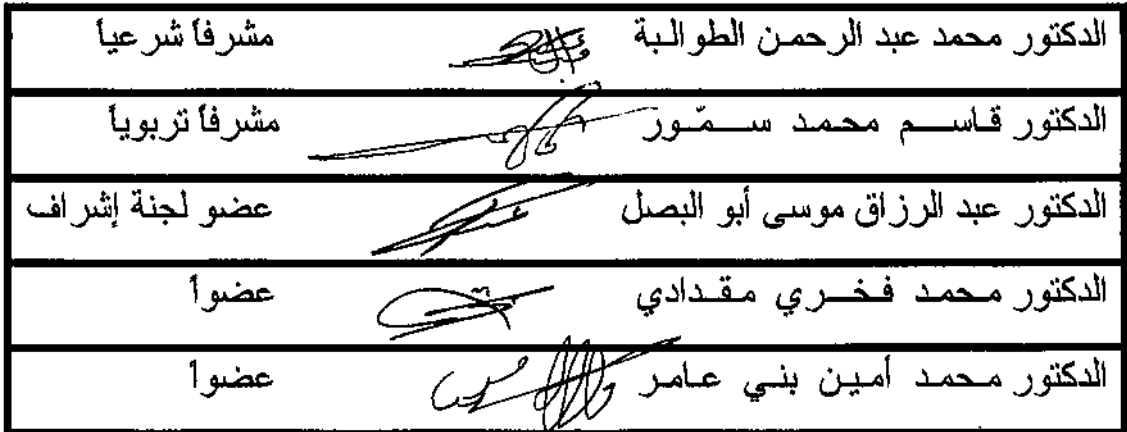 الدكتور محمد عبد الرحمن الطوالبة مشرفاً شرعياً
الدكتور قاسم محمد سمّور مشرفاً تربوياً
الدكتور عبد الرزاق موسى أبو البصل عضو لجنة إشراف
الدكتور محمد فخري مقدادي عضواً
الدكتور محمد أمين بني عامر عضواً